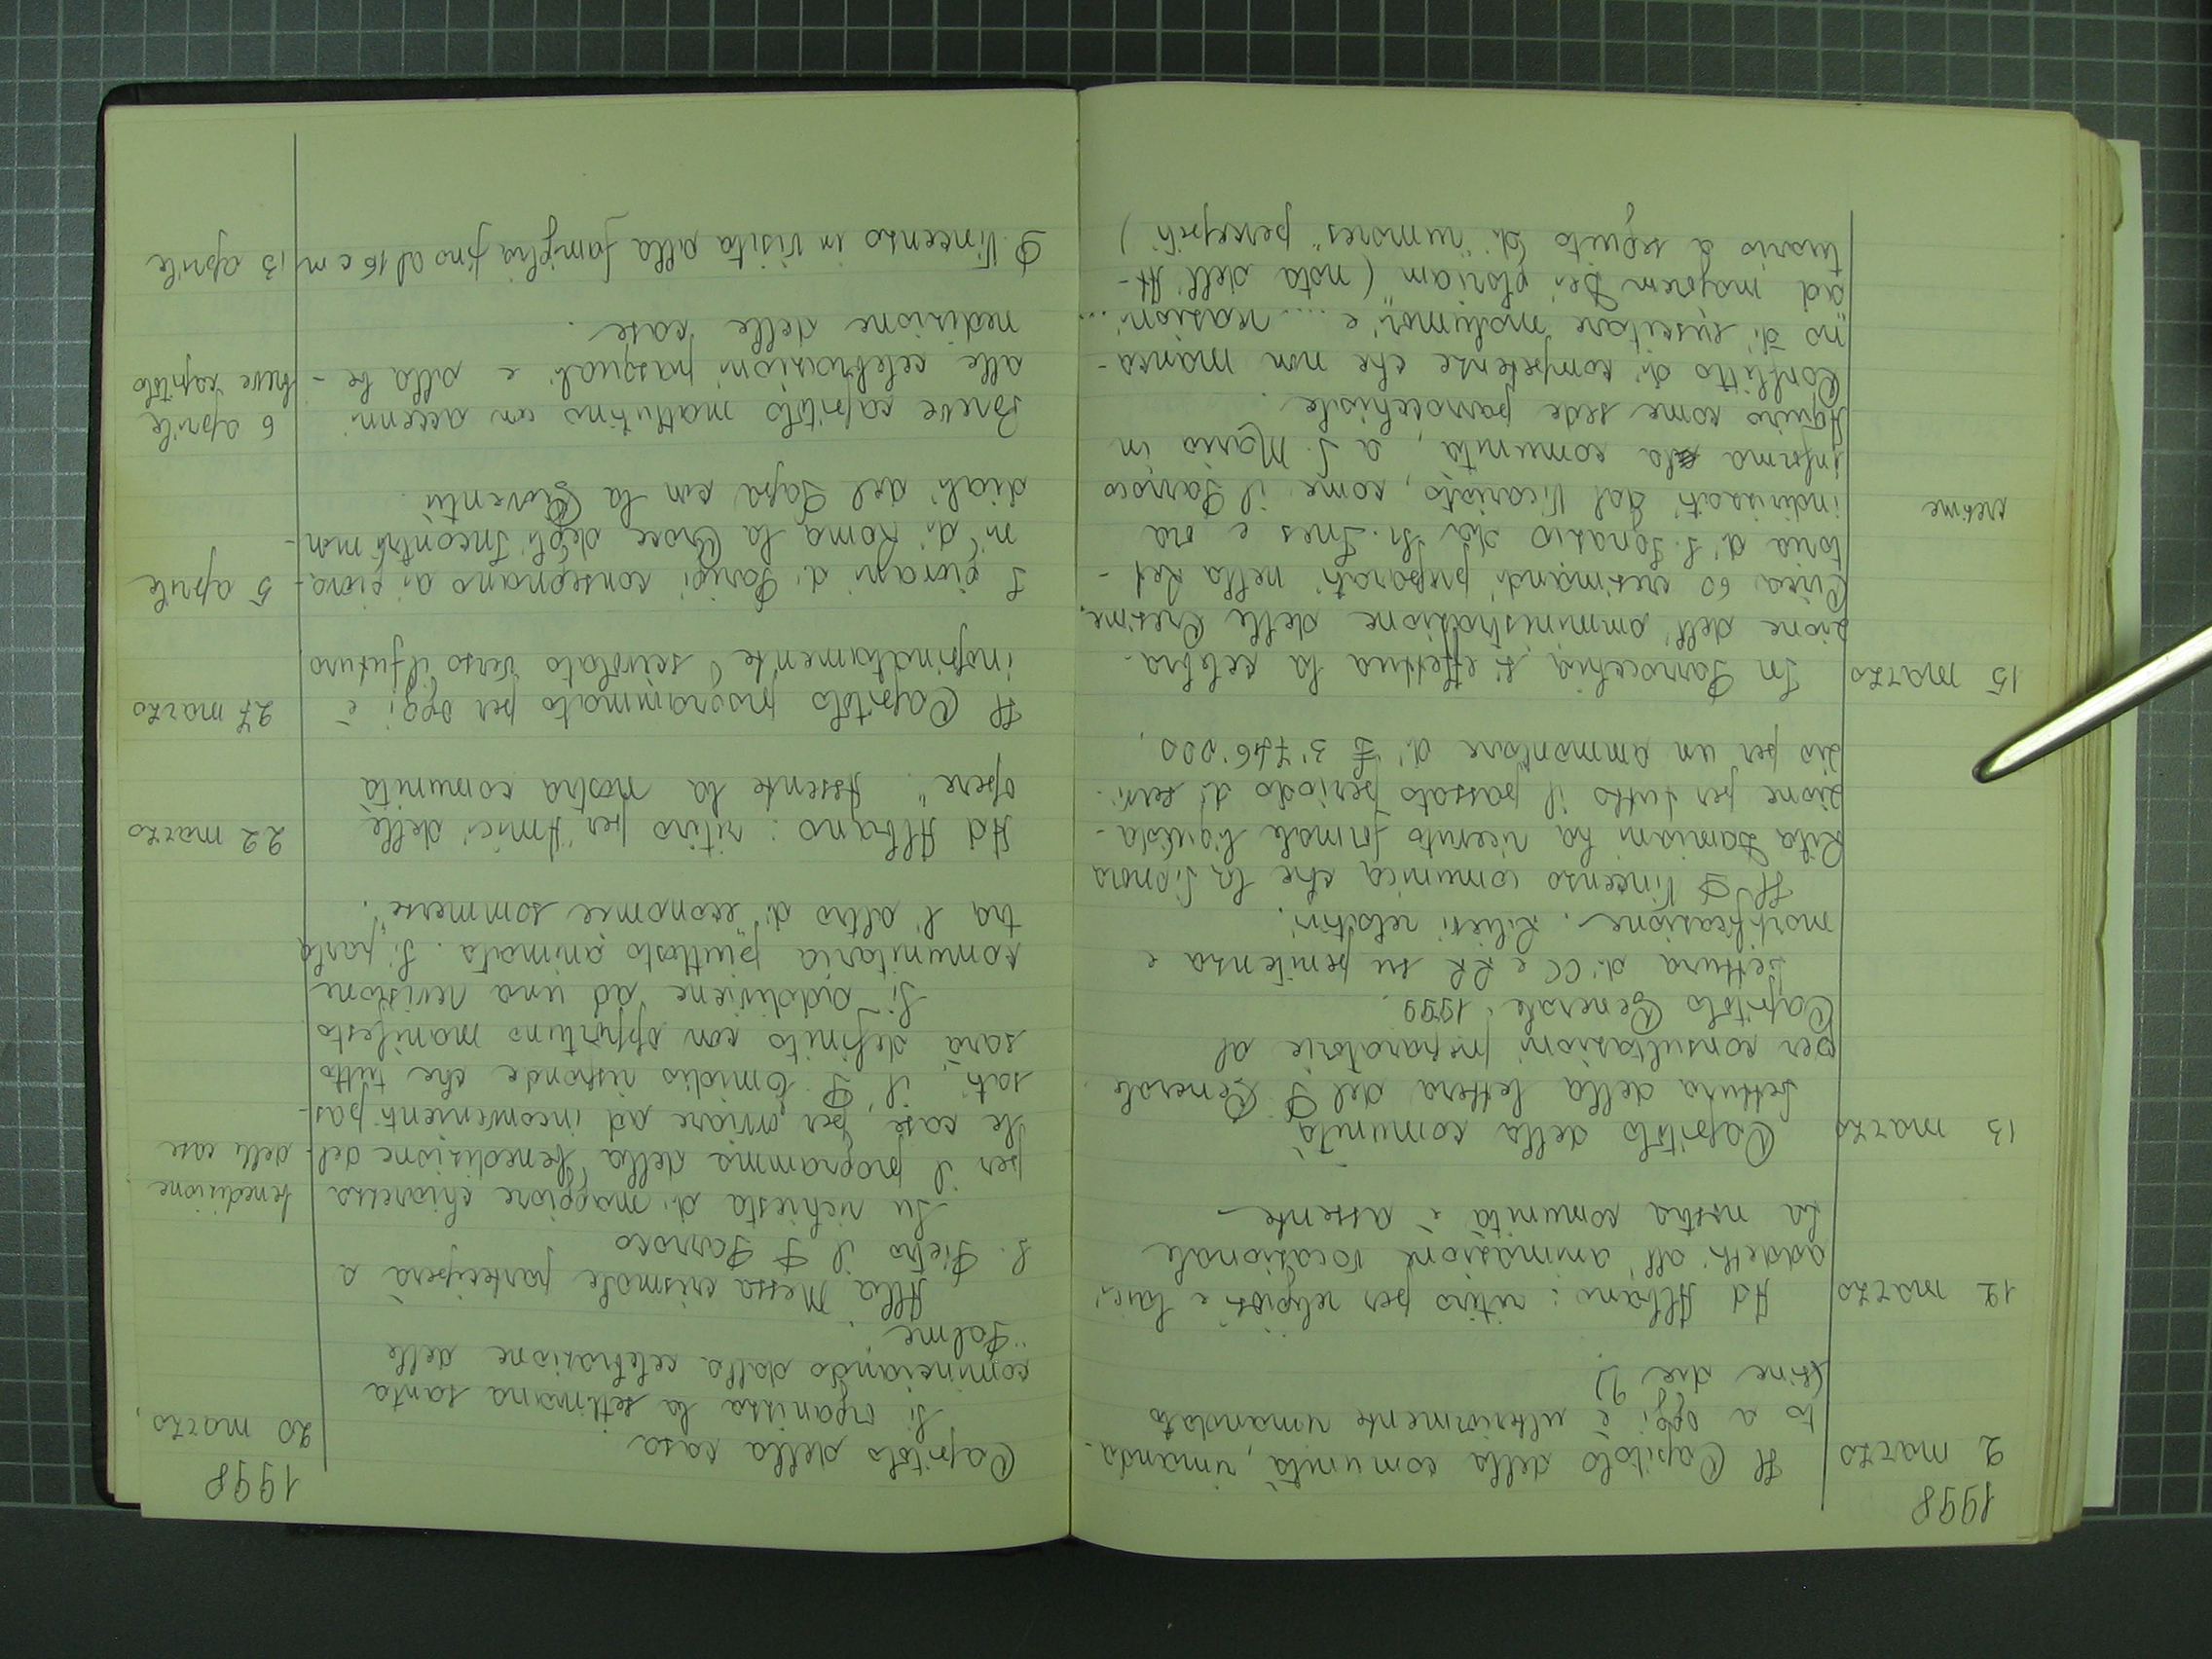 1998
9 marzo Il Capitolo della comunità, rimanda-
to a oggi è ulteriormente rimandato
(sine die ?)
12 marzo Ad Albano: ritiro per religiosi e laici
addetti all'animazione vocazionale
La nostra comunità è assente
13 marzo Capitolo della comunità
Lettura della lettera del P. Generale
per consultazioni preparatorie al
Capitolo Generale 1999.
Lettura di CC e RR su penitenza e
mortificazione. Rilievi relativi.
Il P. Vincenzo comunica che la Signora
Rita Damiani ha ricevuto formale liquida-
zione per tutto il passato periodo di servi-
zio per un ammontare di £ 3'746'000,
15 marzo In Parrocchia si effettua la celebra-
zione dell'amministrazione delle Cresime.
Circa 60 cresimandi preparati nella Ret-
toria di S. Ignazio da Sr. Ines e ora
cresime indirizzati dal Vicariato, come il Parroco
informa la comunità, a S. Maria in
Aquiro come sede parrocchiale.
Conflitto di competenze che non manca-
no di suscitare "malumori" e .... reazioni...
ad majorem Dei gloriam" (nota dell'At-
tuario a seguito di "rumores" percepiti)
1998
20 marzo, Capitolo della casa
Si organizza la settimana santa
cominciando dalla celebrazione delle
Palme".
Alla Messa crismale parteciperà a
S. Pietro il P. Parroco
benedizione Su richiesta di maggiore chiarezza
delle case per il programma della "benedizione del-
le case", per ovviare ad inconvenienti pas-
sati, il P. Comidio risponde che tutto
sarà definito con opportuno manifesto
Si addiviene ad una revisione
comunitaria piuttosto animata. Si parla
tra l'altro di "economie sommerse".
22 marzo Ad Albano: ritiro per "Amici delle
opere". Assente la nostra comunità
27 marzo Il Capitolo programmato per oggi è
inopinatamente scivolato verso il futuro
5 aprile I giovani di Parigi consegnano ai giova-
ni di Roma la Croce degli Incontri mon-
diali del Papa con la Gioventù.
6 aprile Breve capitolo mattutino con accenni
breve capitolo alle celebrazioni pasquali e alla be-
nedizione delle case.
13 aprile P. Vincenzo in visita alla famiglia fino al 16 c m